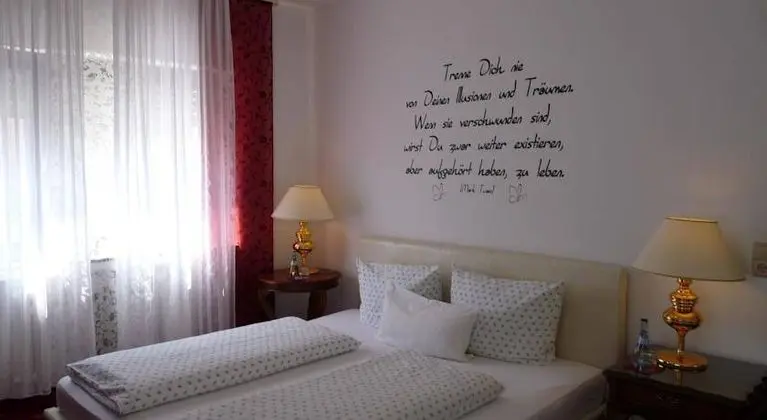 Trenne Dich nie
von Deinen Illusionen und Träumen.
Wenn sie verschwunden sind,
wirst Du zwar weiter existieren,
aber aufgehört haben, zu leben.
(Mark Twain)